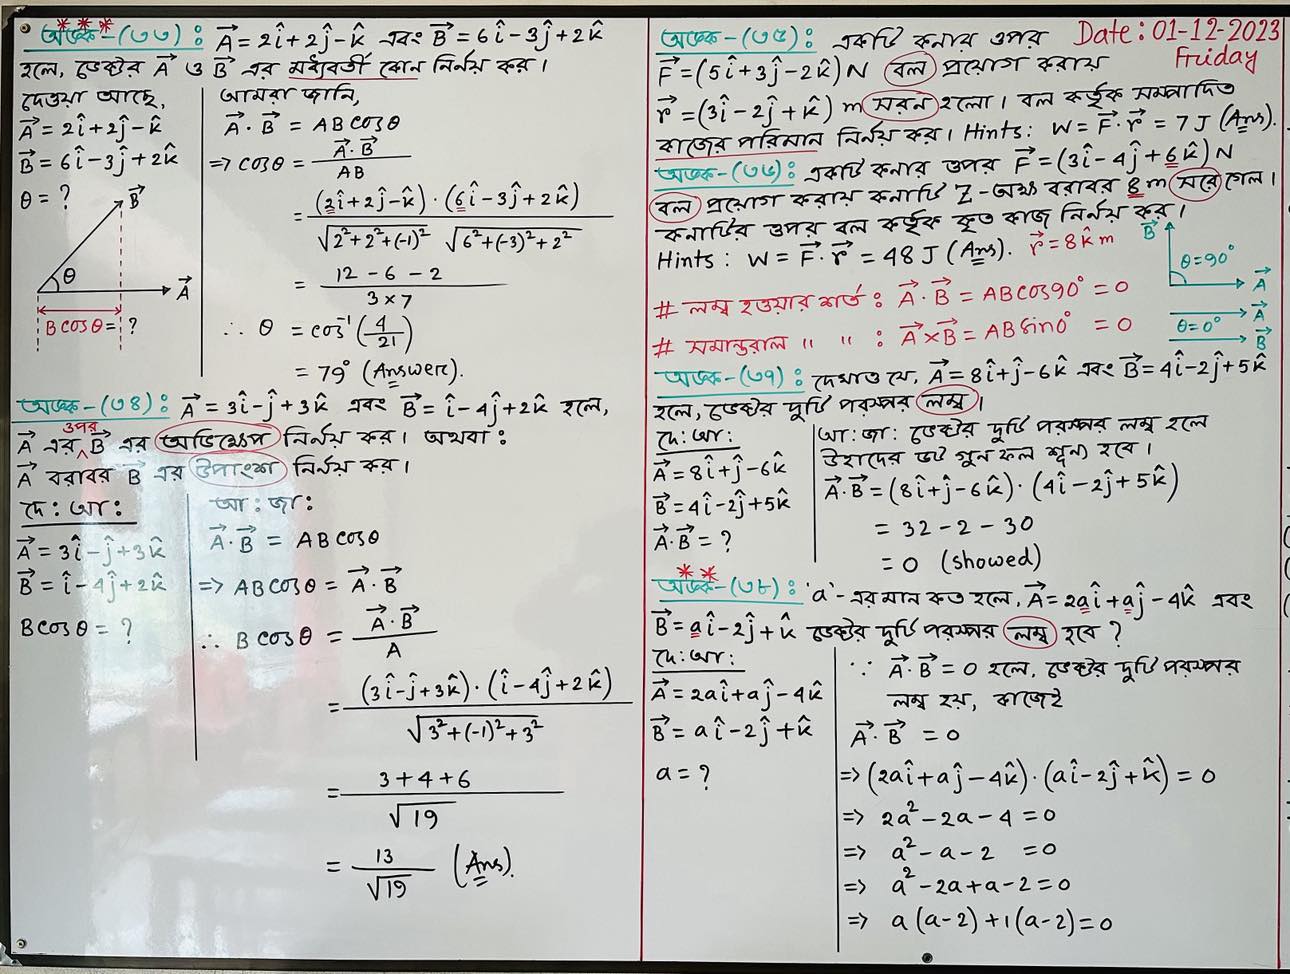 অঙ্ক-(৩৩): A⃗ = 2î+2ĵ-k̂ এবং B⃗ = 6î-3ĵ+2k̂
হলে, ভেক্টর A⃗ ও B⃗ এর মধ্যবর্তী কোন নির্নয় কর।
দেওয়া আছে,
A⃗ = 2î+2ĵ-k̂
B⃗ = 6î-3ĵ+2k̂
θ = ?
B⃗
θ
A⃗
B cosθ = ?
আমরা জানি,
A⃗·B⃗ = AB cosθ
=> cosθ = A⃗·B⃗ / AB
= (2î+2ĵ-k̂)·(6î-3ĵ+2k̂) / √2²+2²+(-1)² √6²+(-3)²+2²
= 12-6-2 / 3×7
∴ θ = cos⁻¹(4/21)
= 79° (Answer).
অঙ্ক-(৩৪): A⃗ = 3î-ĵ+3k̂ এবং B⃗ = î-4ĵ+2k̂ হলে,
A⃗ এর উপর B⃗ এর অভিক্ষেপ নির্নয় কর। অথবা:
A⃗ বরাবর B⃗ এর উপাংশ নির্নয় কর।
দে: আ:
A⃗ = 3î-ĵ+3k̂
B⃗ = î-4ĵ+2k̂
B cosθ = ?
আ: জা:
A⃗·B⃗ = AB cosθ
=> AB cosθ = A⃗·B⃗
∴ B cosθ = A⃗·B⃗ / A
= (3î-ĵ+3k̂)·(î-4ĵ+2k̂) / √3²+(-1)²+3²
= 3+4+6 / √19
= 13/√19 (Ans).
Date: 01-12-2023
Friday
অঙ্ক-(৩৫): একটি কনার ওপর
F⃗ = (5î+3ĵ-2k̂) N বল প্রয়োগ করায়
r⃗ = (3î-2ĵ+k̂) m সরন হলো। বল কর্তৃক সম্পাদিত
কাজের পরিমান নির্নয় কর। Hints: W = F⃗·r⃗ = 7 J (Ans).
অঙ্ক-(৩৬): একটি কনার ওপর F⃗ = (3î-4ĵ+6k̂) N
বল প্রয়োগ করায় কনাটি Z-অক্ষ বরাবর 8 m সরে গেল।
কনাটির ওপর বল কর্তৃক কৃত কাজ নির্নয় কর।
Hints: W = F⃗·r⃗ = 48 J (Ans). r⃗ = 8k̂ m
B⃗
θ = 90°
A⃗
# লম্ব হওয়ার শর্ত: A⃗·B⃗ = AB cos90° = 0
# সমান্তরাল " " : A⃗×B⃗ = AB sin0° = 0
A⃗
θ = 0°
B⃗
অঙ্ক-(৩৭): দেখাও যে, A⃗ = 8î+ĵ-6k̂ এবং B⃗ = 4î-2ĵ+5k̂
হলে, ভেক্টর দুটি পরস্পর লম্ব।
দে: আ:
A⃗ = 8î+ĵ-6k̂
B⃗ = 4î-2ĵ+5k̂
A⃗·B⃗ = ?
আ: জা: ভেক্টর দুটি পরস্পর লম্ব হলে
উহাদের ডট গুন ফল শূন্য হবে।
A⃗·B⃗ = (8î+ĵ-6k̂)·(4î-2ĵ+5k̂)
= 32-2-30
= 0 (showed)
অঙ্ক-(৩৮): 'a'-এর মান কত হলে, A⃗ = 2aî+aĵ-4k̂ এবং
B⃗ = aî-2ĵ+k̂ ভেক্টর দুটি পরস্পর লম্ব হবে?
দে: আ:
A⃗ = 2aî+aĵ-4k̂
B⃗ = aî-2ĵ+k̂
a = ?
∵ A⃗·B⃗ = 0 হলে, ভেক্টর দুটি পরস্পর
লম্ব হয়, কাজেই
A⃗·B⃗ = 0
=> (2aî+aĵ-4k̂)·(aî-2ĵ+k̂) = 0
=> 2a²-2a-4 = 0
=> a²-a-2 = 0
=> a²-2a+a-2 = 0
=> a(a-2)+1(a-2) = 0